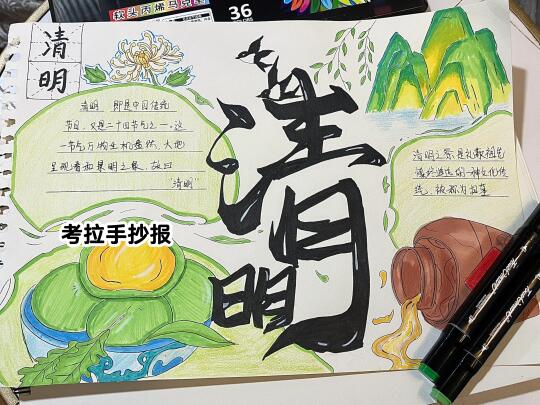 软头丙烯马克笔
36
清
明
清明
清明 即是中国传统
节日,又是二十四节气之一,这
一节气万物生机盎然,大地
呈现春和景明之象,故曰
"清明"
清明之祭是礼敬祖先
慎终追远的一种文化传
统,被称为扫墓
考拉手抄报